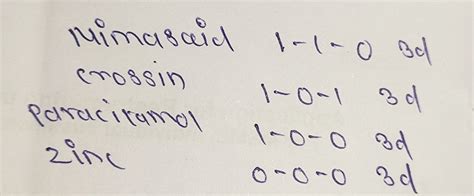 Nimasaid 1-1-0 3d
crossin 1-0-1 3d
paraciramol 1-0-0 3d
zinc 0-0-0 3d